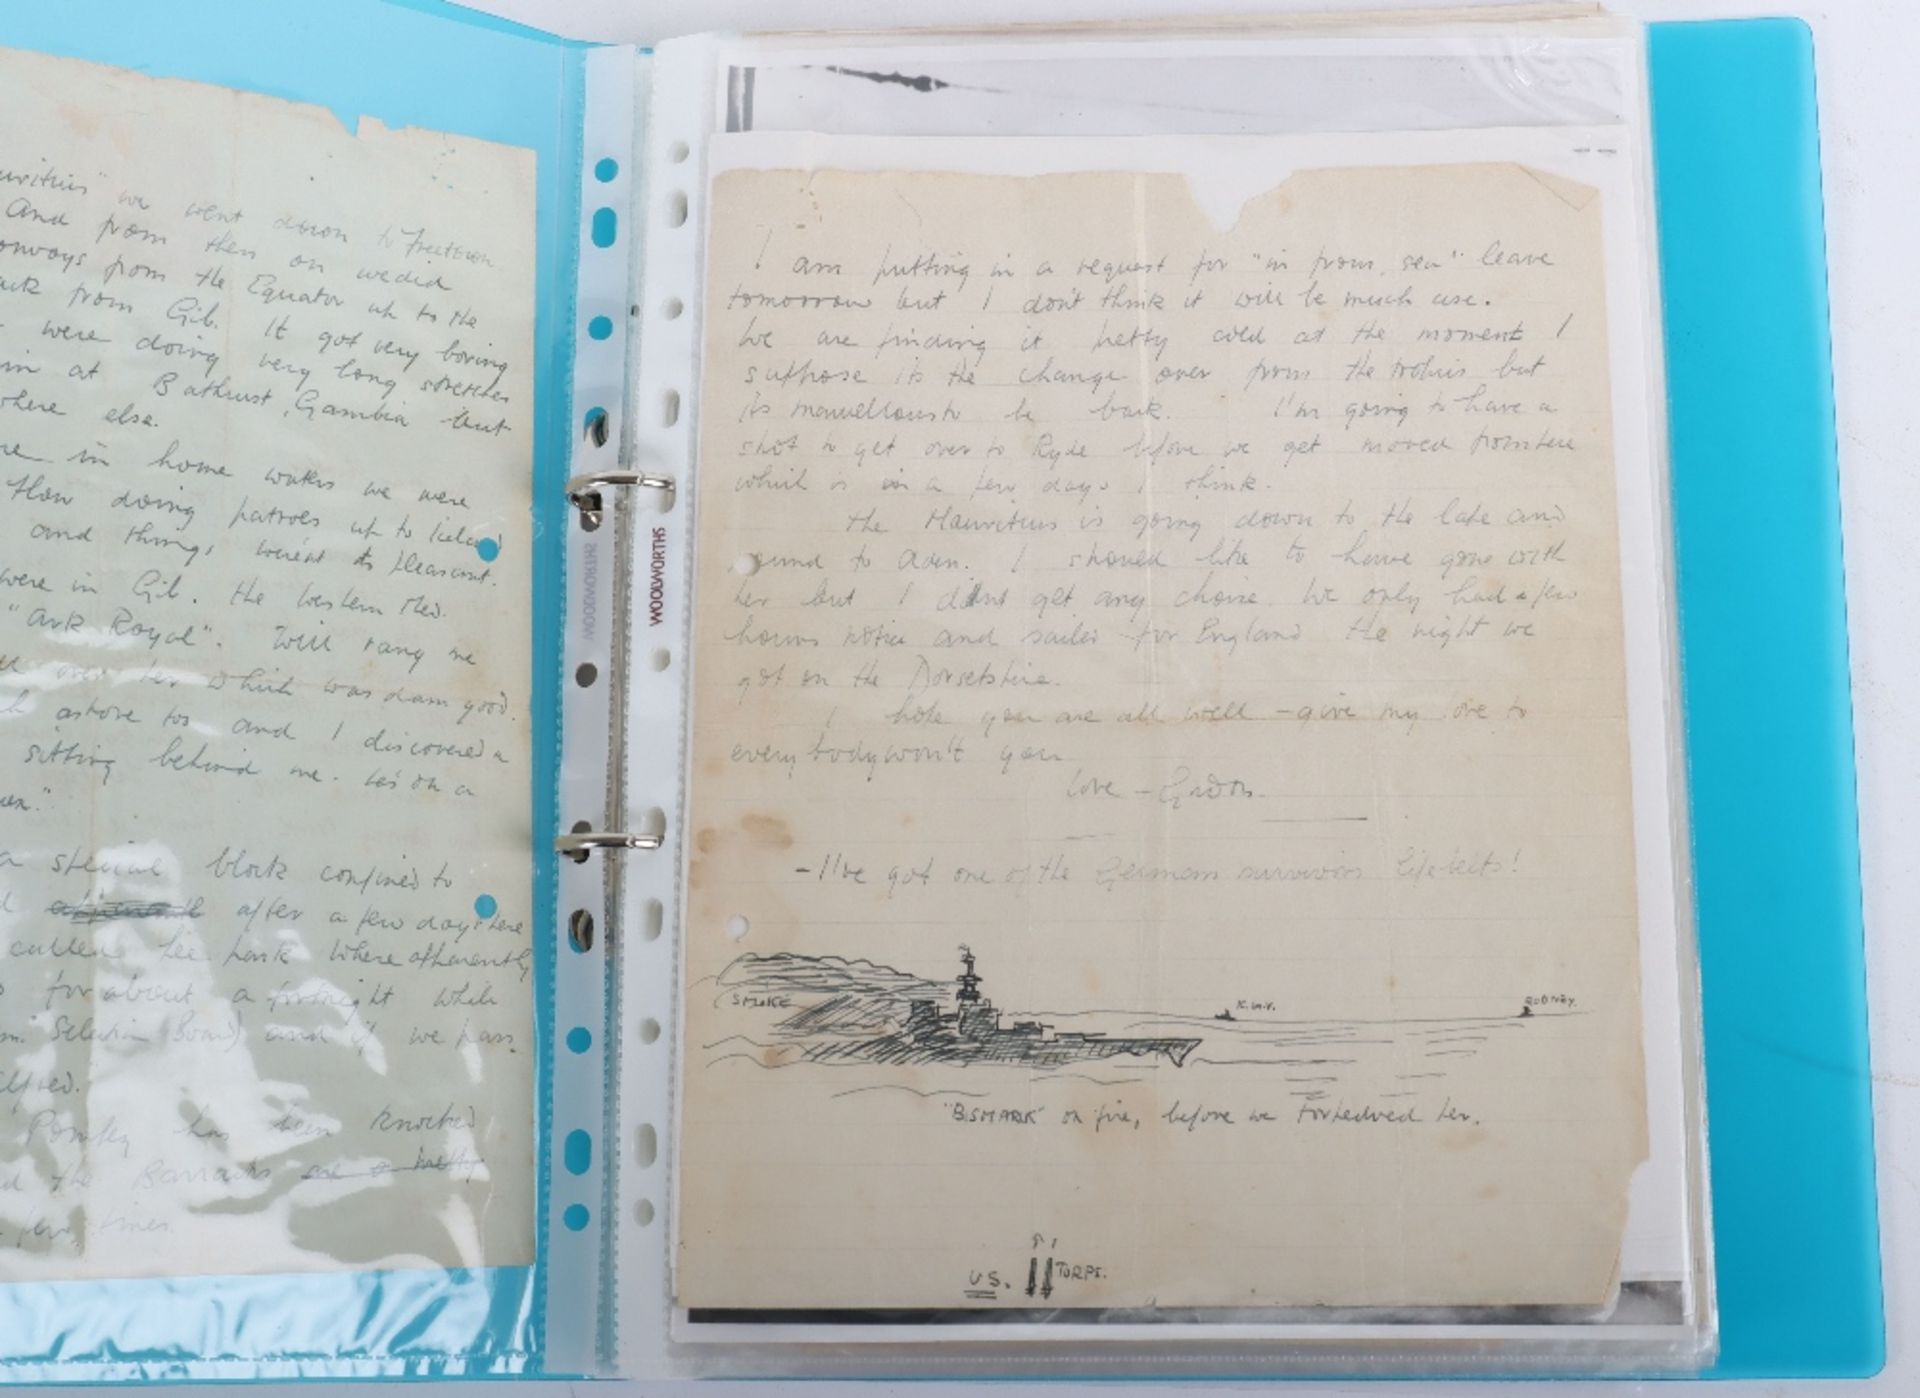 we went down to Freetown
And from then on we did
from the Equator up to the
from Gib. It got very boring
were doing very long stretches
in at Bathurst, Gambia but
where else.
in home waters we were
doing patrols up to Iceland
and things weren't to pleasant.
were in Gib. the Western Med.
"Ark Royal". Will rang me
over her which was dam good.
ashore too and I discovered a
sitting behind me. he's on a
a special block confined to
after a few days here
called Lee Park where apparently
for about a fortnight while
Selection Board) and if we pass
Pompey has been knocked
the Barracks are a pretty
few times.
WOOLWORTHS
WOOLWORTHS
I am putting in a request for "in from sea" leave
tomorrow but I don't think it will be much use.
We are finding it pretty cold at the moment I
suppose its the change over from the tropics but
its marvellous to be back. I'm going to have a
shot to get over to Ryde before we get moved from here
which is in a few days I think.
The Mauritius is going down to the Cape and
round to Aden. I should like to have gone with
her but I didnt get any choice. We only had a few
hours notice and sailed for England the night we
got on the Dorsetshire.
I hope you are all well - give my love to
everybody won't you
Love - Gordon.
- I've got one of the Germans survivors life-belts!
SMOKE
K.G.V.
RODNEY.
"BISMARK" on fire, before we torpedoed her.
US. TORPS.